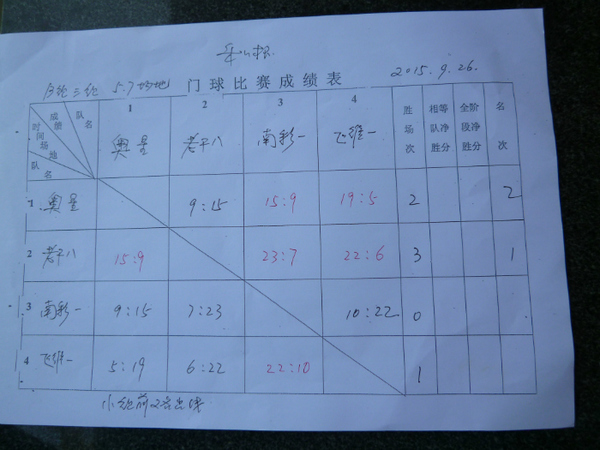 2015.9.26.
5.7场地 门球比赛成绩表
1 2 3 4
队名 成绩 时间 场地 队名
奥星 老干八 南彩一 飞维一
胜场次 相等队净胜分 全阶段净胜分 名次
1 奥星 9:15 15:9 19:5 2 2
2 老干八 15:9 23:7 22:6 3 1
3 南彩一 9:15 7:23 10:22 0
4 飞维一 5:19 6:22 22:10 1
小组前2名出线